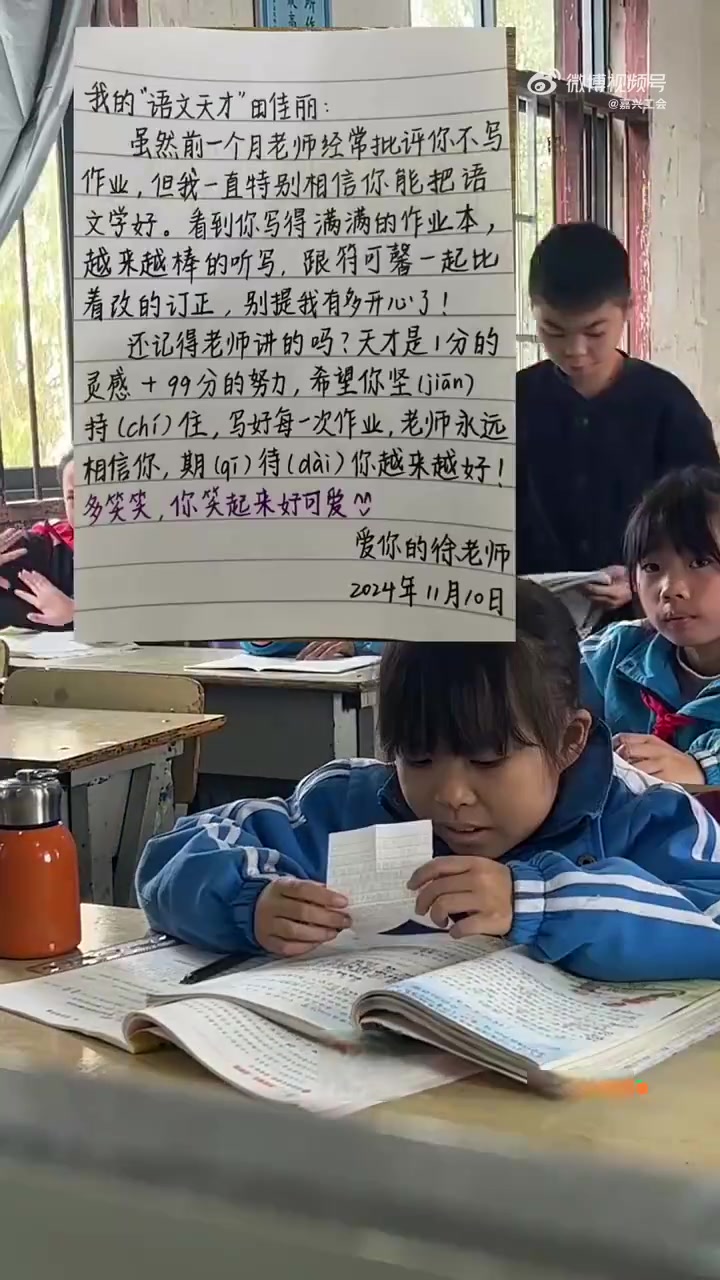 所作
最高
微博视频号
@嘉兴工会
我的“语文天才”田佳丽：
虽然前一个月老师经常批评你不写
作业，但我一直特别相信你能把语
文学好。看到你写得满满的作业本，
越来越棒的听写，跟符可馨一起比
着改的订正，别提我有多开心了！
还记得老师讲的吗？天才是1分的
灵感＋99分的努力，希望你坚(jiān)
持(chí)住，写好每一次作业，老师永远
相信你，期(qī)待(dài)你越来越好！
多笑笑，你笑起来好可爱
爱你的徐老师
2024年11月10日